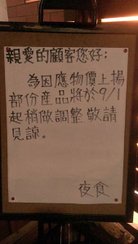 親愛的顧客您好:
為因應物價上揚
部份產品將於9/1
起稍做調整 敬請
見諒。
夜食